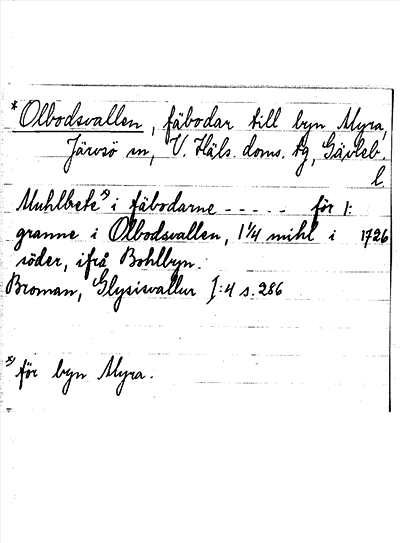 *Olbodsvallen, fäbodar till byn Myra,
Järvsö sn, V. Häls. doms. tg, Gävleb.
l.
Muhlbete x) i fäbodarne - - - - - för 1:
granne i Olbodsvallen, 1 1/4 mihl i 1726
söder, ifrå Bohlbyn.
Broman, Glysisvallur I:4 s. 286
x) för byn Myra.